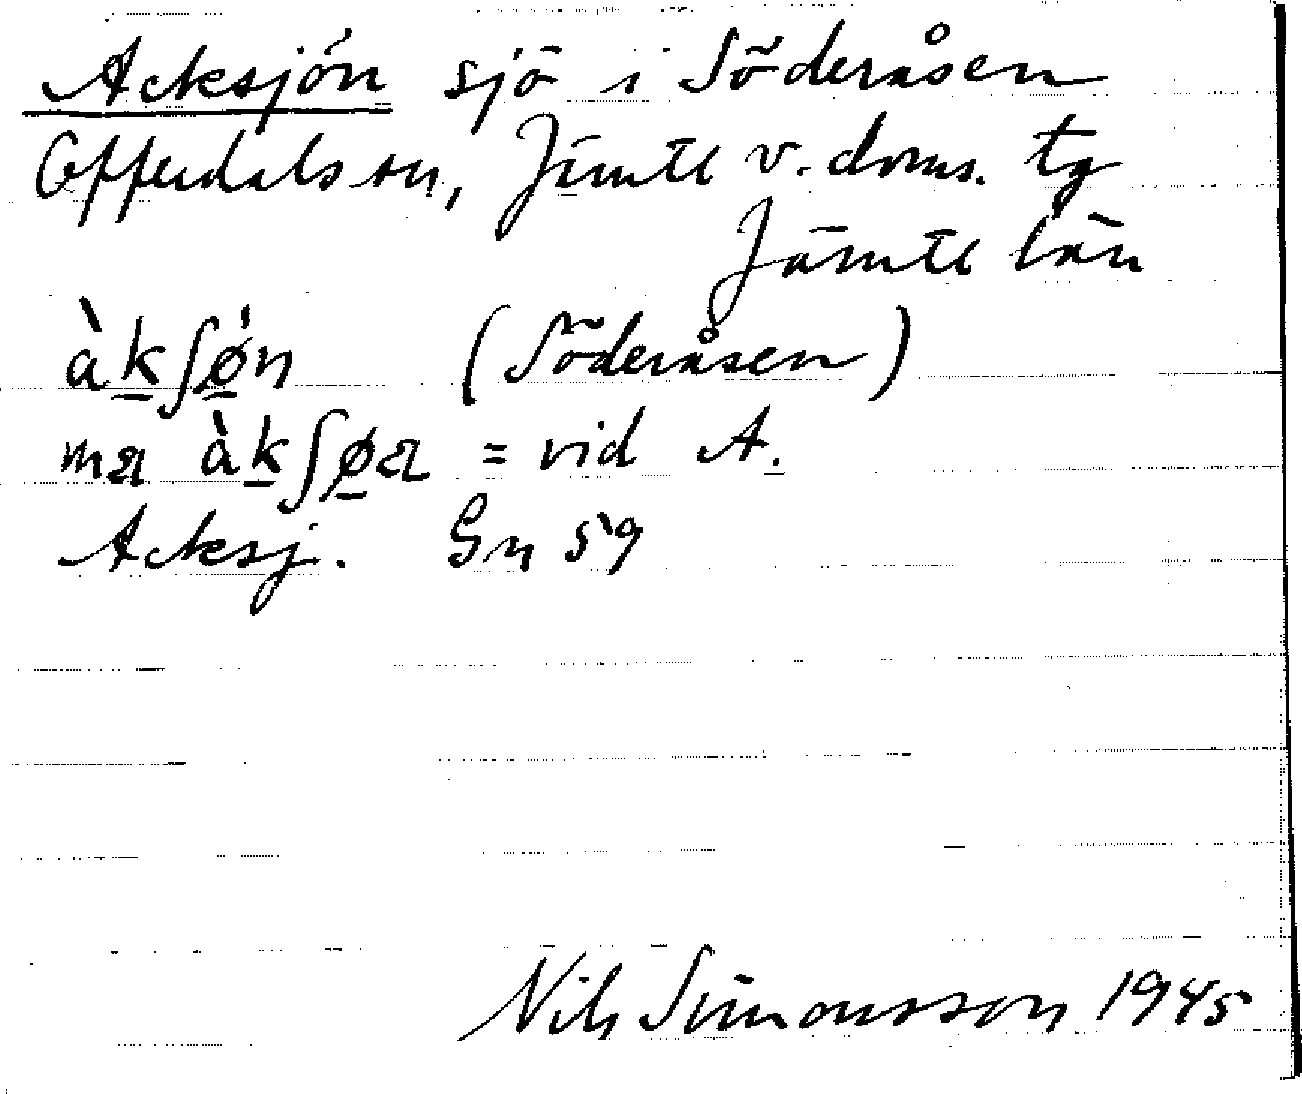 Acksjön sjö i Söderåsen
Offerdals sn, Jämtl v. doms. tg
Jämtl län
àk̲ʃø̲̍n (Söderåsen)
mæ àk̲ʃø̲æ = vid A.
Acksj. Gn 59
Nils Simonsson 1945